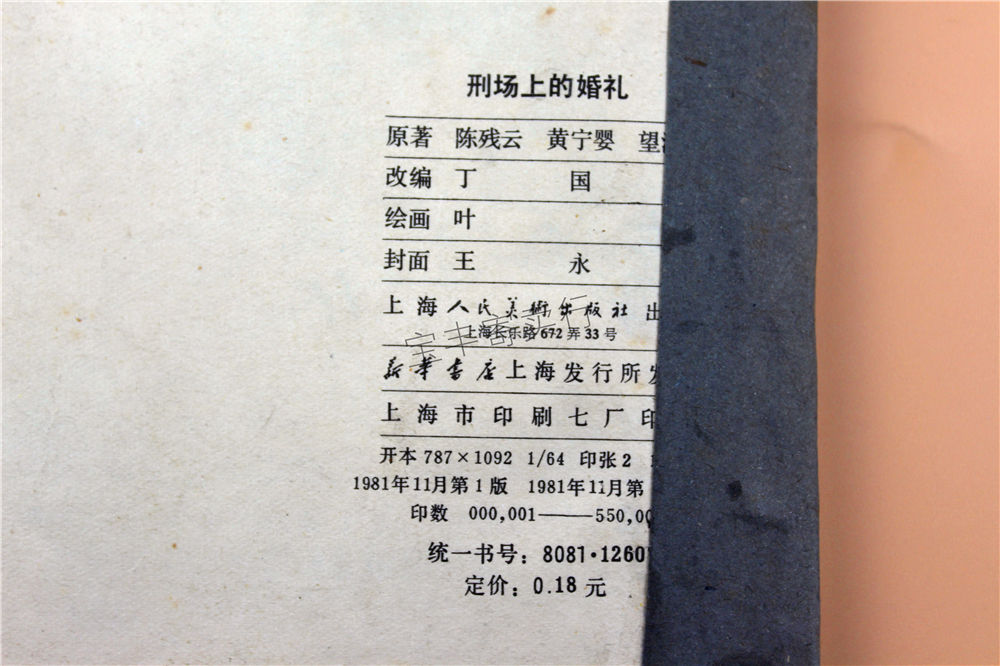 刑场上的婚礼
原著 陈残云 黄宁婴 望
改编 丁 国
绘画 叶
封面 王 永
上海人民美術出版社 出
上海长乐路672弄33号
宝丰商行
新華書店上海发行所发
上海市印刷七厂印
开本 787×1092 1/64 印张 2
1981年11月第1版 1981年11月第
印数 000,001——550,00
统一书号：8081·1260
定价：0.18元